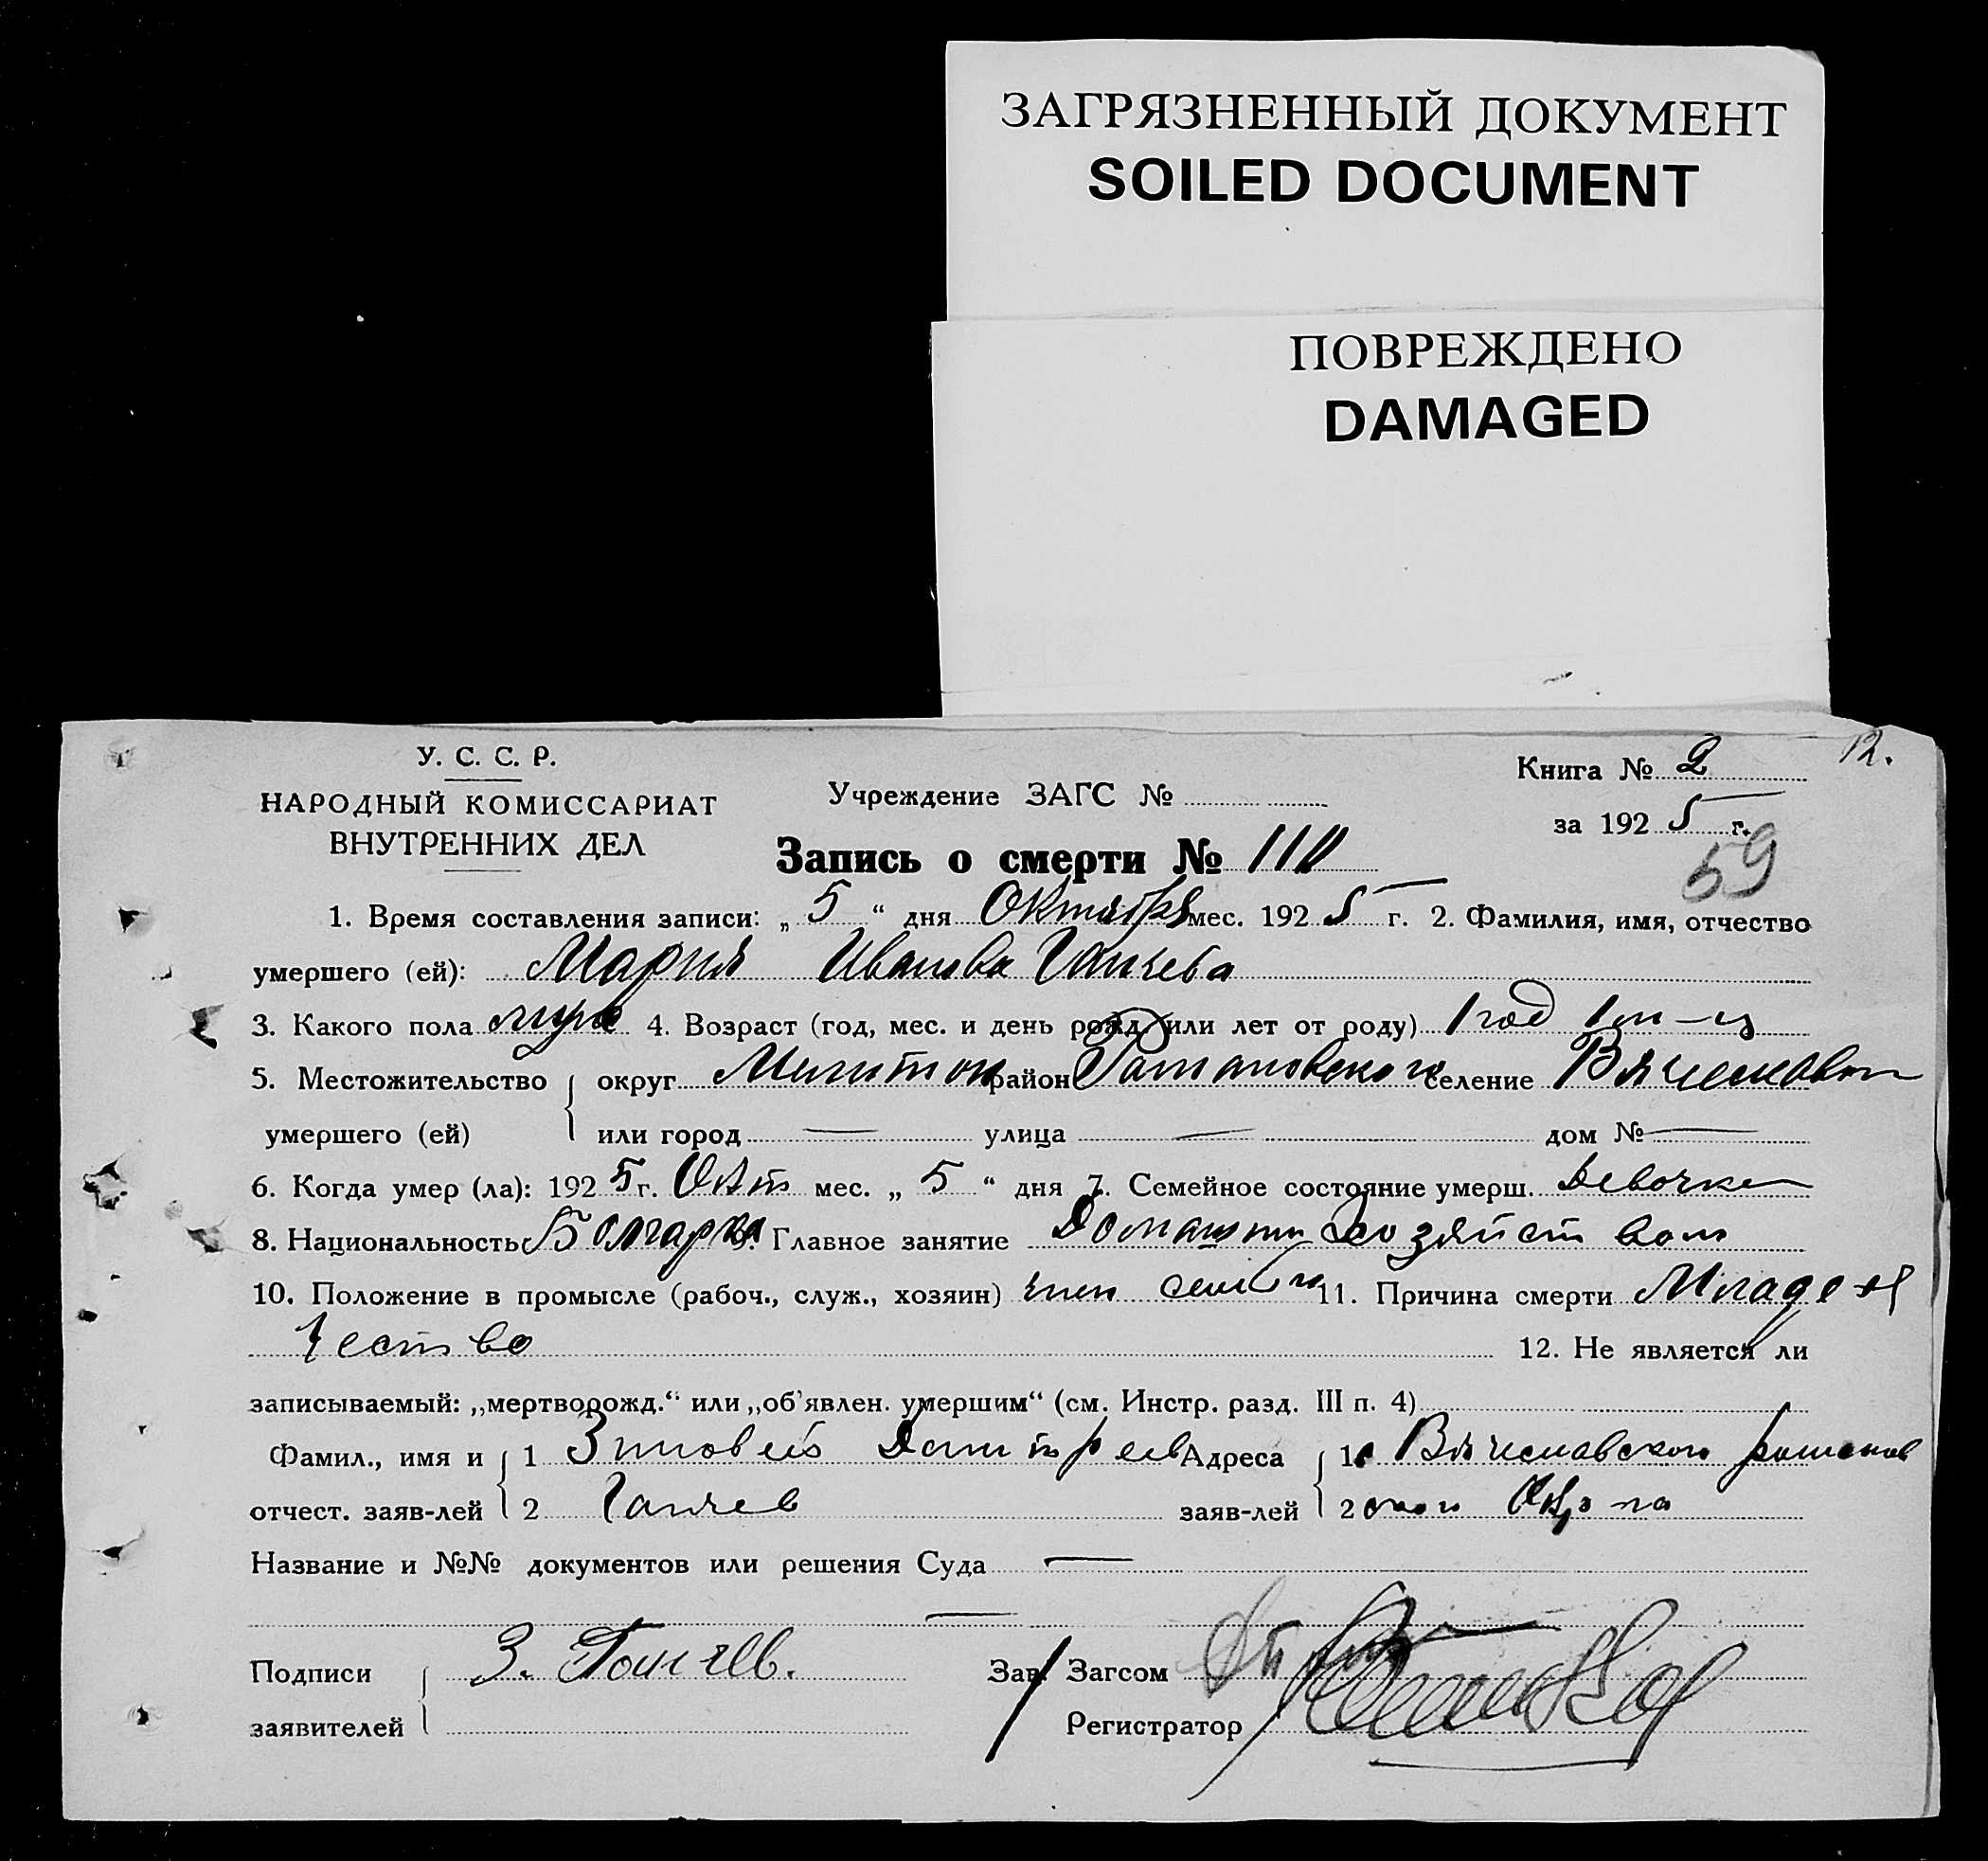 ЗАГРЯЗНЕННЫЙ ДОКУМЕНТ
SOILED DOCUMENT
ПОВРЕЖДЕНО
DAMAGED
12.
У. С. С. Р.
НАРОДНЫЙ КОМИССАРИАТ
ВНУТРЕННИХ ДЕЛ
Учреждение ЗАГС №
Книга № 2
за 1925 г.
59
Запись о смерти № 110
1. Время составления записи: „ 5 “ дня Октября мес. 1925 г. 2. Фамилия, имя, отчество
умершего (ей): Мария Иванова Ганчева
3. Какого пола 4. Возраст (год, мес. и день рожд. или лет от роду) 1 год 1 м-ц
5. Местожительство округ Мелитоп район Романовского селение Вячеславки
умершего (ей) или город — улица — дом № —
6. Когда умер (ла): 1925 г. Окт мес. „ 5 “ дня 7. Семейное состояние умерш. Девочка
8. Национальность Болгарка 9. Главное занятие Домашним хозяйством
10. Положение в промысле (рабоч., служ., хозяин) член семьи 11. Причина смерти Младен
чество 12. Не является ли
записываемый: „мертворожд.“ или „об'явлен. умершим“ (см. Инстр. разд. III п. 4)
Фамил., имя и 1 Зиновей Дмитреев Адреса 1 Вячеславского романов
отчест. заяв-лей 2 Ганчев заяв-лей 2 ского
Название и №№ документов или решения Суда —
—
Подписи З. Ганчев. Зав. Загсом
заявителей Регистратор